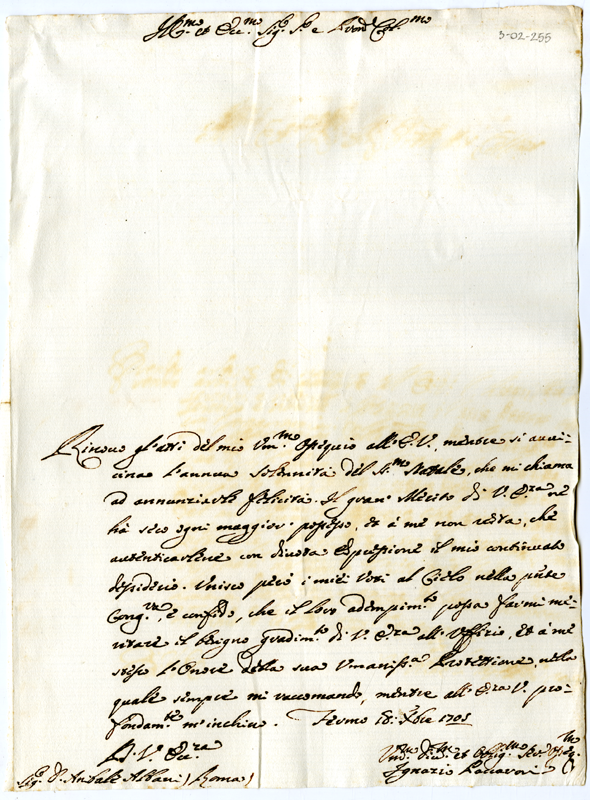 3-02-255
Ill.mo et Ecc.mo Sig.r S.r e P.ron Col.mo
Rinovo gl'atti del mio Um.mo Ossequio all'E.V., mentre si avvi-
cina l'annua solennità del SS.mo Natale, che mi chiama
ad annunziarle felicità. Il gran Merito di V. Ecc.za ne
hà seco ogni maggior possesso, et à me non resta, che
autenticarlene con divota espressione il mio continuato
desiderio. Unisco però i miei Voti al Cielo nella pñte
Cong.ra, e confido, che il loro adempim.to possa farmi me-
ritare il benigno gradim.to di V. Ecc.za all'Uffizio, et à me
stesso l'Onore della sua Umaniss.a Protettione, nella
quale sempre mi raccomando, mentre all'Ecc.za V. pro-
fondam.te m'inchino. Fermo 18: Xbre 1705
D. V. Ecc.za
Um.mo Div.mo et Oblig.mo Ser.e Osseq.mo
Sig.r D. Anibale Albani (Roma)
Ignazio